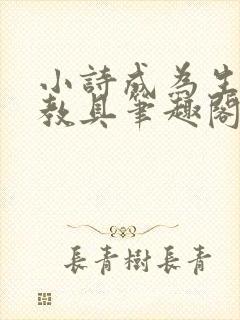 小詩成為生
教具筆趣閣
長青樹長青